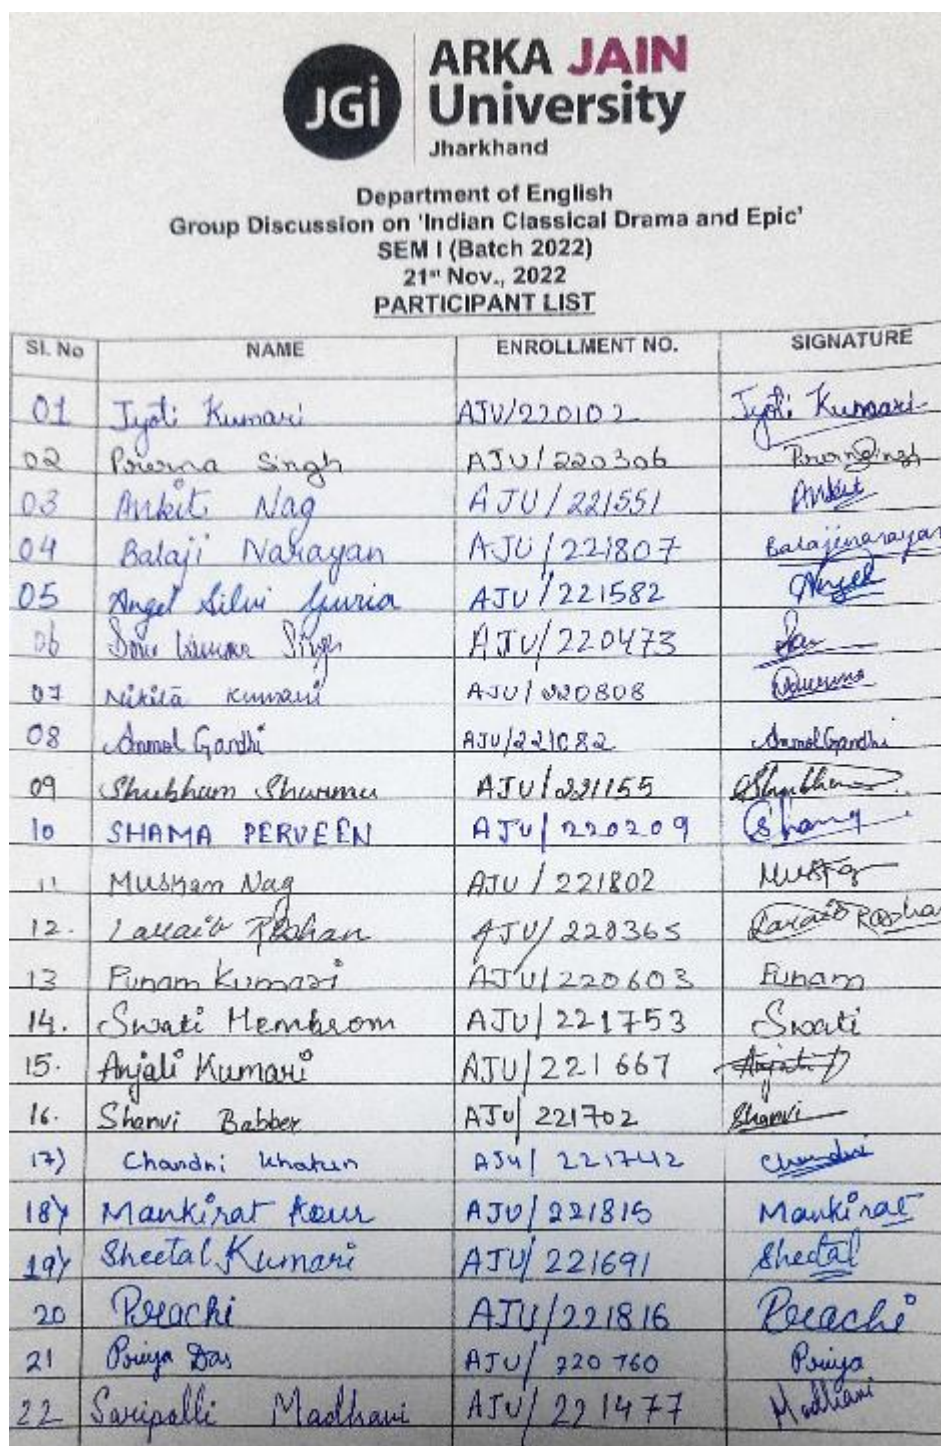 JGi
ARKA JAIN
University
Jharkhand
Department of English
Group Discussion on 'Indian Classical Drama and Epic'
SEM I (Batch 2022)
21st Nov., 2022
PARTICIPANT LIST
Sl. No NAME ENROLLMENT NO. SIGNATURE
01 Jyoti Kumari AJU/220102 Jyoti Kumari
02 Prerna Singh AJU/220306
03 Ankit Nag AJU/221551 Ankit
04 Balaji Narayan AJU/221807 Balajinarayan
05 Angel Silvi Guria AJU/221582 Angel
06 Kumar Singh AJU/220473
07 Nikita Kumari AJU/220808
08 Anmol Gandhi AJU/221082 Anmol Gandhi
09 Shubham Sharma AJU/221155 Shubham
10 SHAMA PERVEEN AJU/220209 Shama
11 Muskan Nag AJU/221802
12. Laraib Roshan AJU/220365 Laraib Roshan
13 Punam Kumari AJU/220603 Punam
14. Swati Hembrom AJU/221753 Swati
15. Anjali Kumari AJU/221667 Anjali
16. Shanvi Babber AJU/221702 Shanvi
17) Chandni Khatun AJU/221742 Chandni
18) Mankirat Kour AJU/221815 Mankirat
19) Sheetal Kumari AJU/221691 Sheetal
20 Prachi AJU/221816 Prachi
21 Priya Das AJU/220760 Priya
22 Saripalli Madhavi AJU/221477 Madhavi